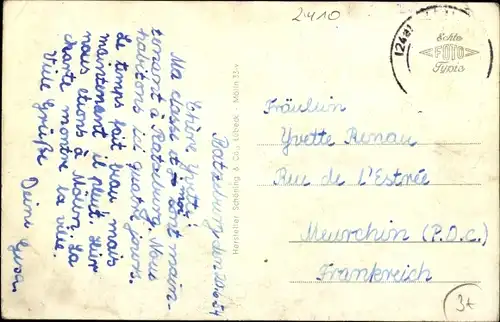 2410
(24a)
Echte
FOTO
Typie
Ratzeburg den
Chère Yvette!
Ma classe et moi sont main-
tenant à Ratzeburg. Nous
habitons ici quatre jours.
Le temps fait beau, mais
maintenant il pleut. Hier
nous étions à Mölln. La
charte montre la ville.
Viele Grüße Deine
Hersteller Schöning & Co., Lübeck - Mölln
Fräulein
Yvette Renau
Rue de l'Estrée
Meurchin (P.D.C.)
Frankreich